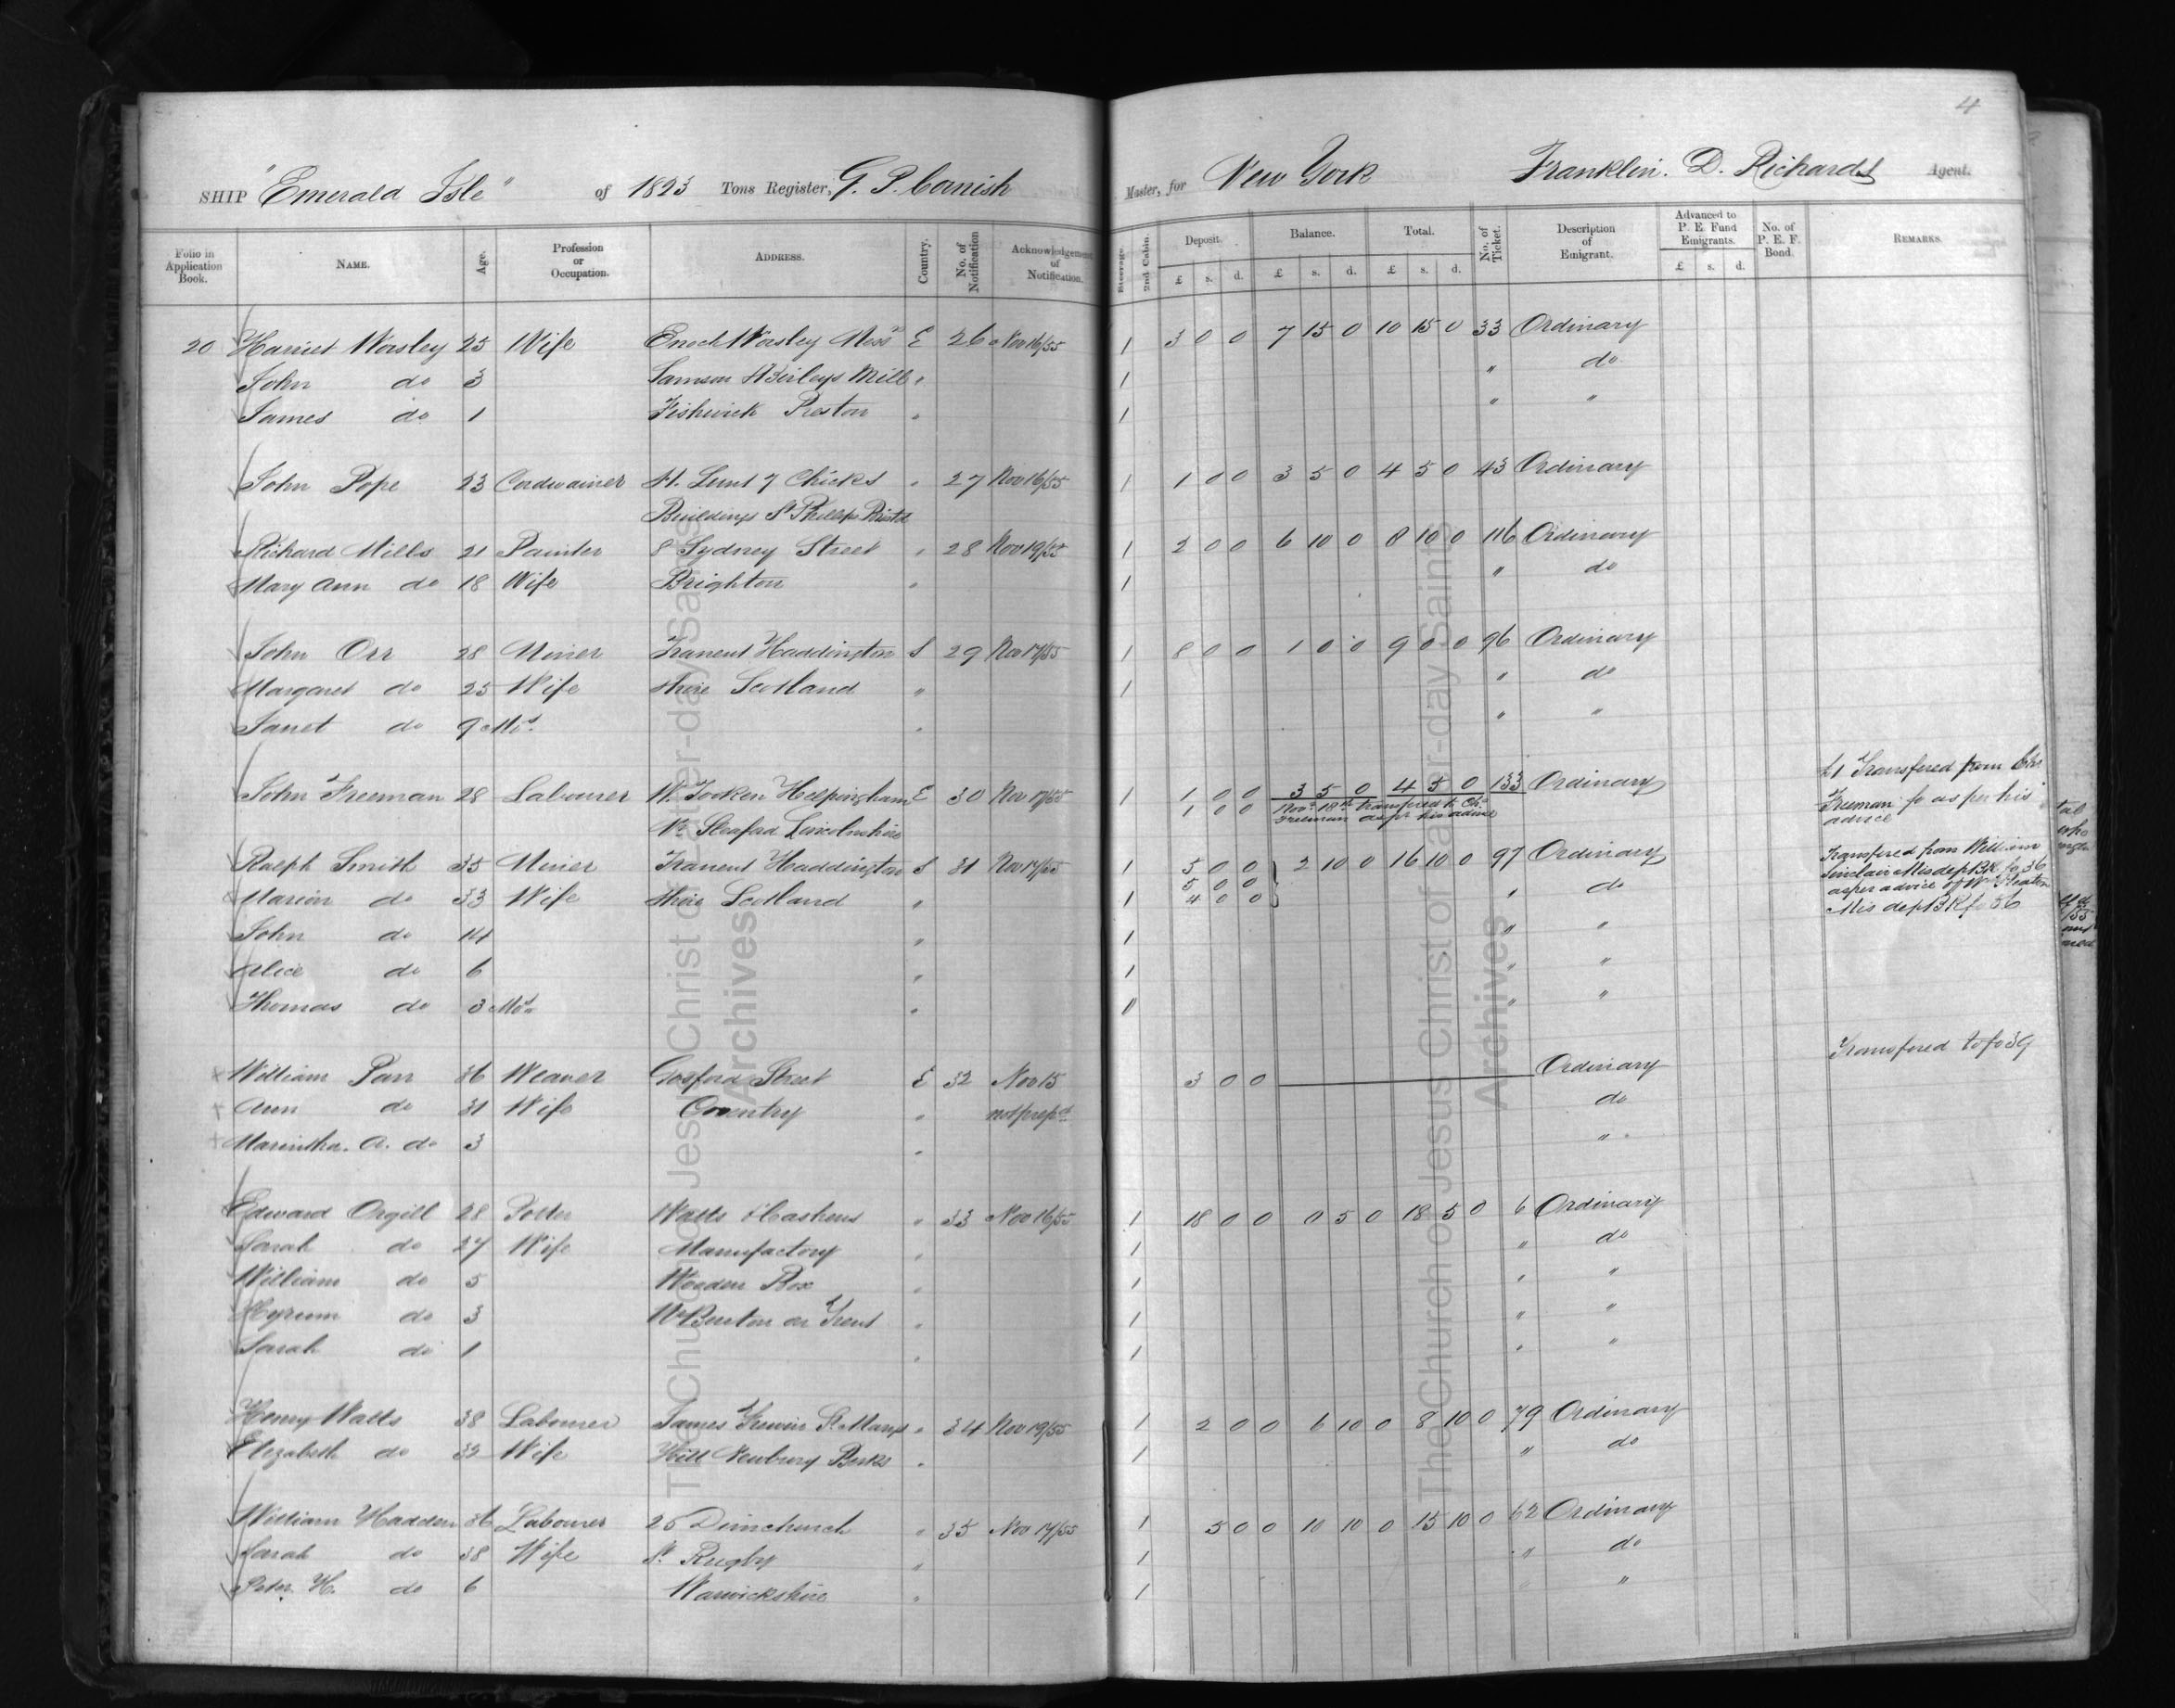 4
SHIP "Emerald Isle" of 1823 Tons Register, G. P. Cornish Master, for New York Franklin. D. Richards Agent.
Folio in Application Book. NAME. Age. Profession or Occupation. ADDRESS. Country. No. of Notification Acknowledgement of Notification. Steerage. 2nd Cabin. Deposit. Balance. Total. No. of Ticket. Description of Emigrant. Advanced to P. E. Fund Emigrants. No. of P. E. F. Bond. REMARKS.
£ s. d. £ s. d. £ s. d. £ s. d.
20 Harriet Worsley 25 Wife Enoch Worsley E 26 Nov 16/55 1 3 0 0 7 15 0 10 15 0 33 Ordinary
John do 3 Birleys Mill " 1 " do
James do 1 Fishwick Preston " 1 " "
John Pope 23 Cordwainer H. Lunt 7 Chicks " 27 Nov 16/55 1 1 0 0 3 5 0 4 5 0 43 Ordinary
Buildings St Phillips
Richard Mills 21 Painter 8 Sydney Street " 28 Nov 19/55 1 2 0 0 6 10 0 8 10 0 116 Ordinary
Mary Ann do 18 Wife Brighton " 1 " do
John Orr 28 Miner Tranent Haddington S 29 Nov 17/55 1 8 0 0 1 0 0 9 0 0 96 Ordinary
Margaret do 25 Wife shire Scotland " 1 " do
Janet do 9 Mos. " " "
£1 Transfered from
John Freeman 28 Labourer Helpingham E 30 Nov 17/55 1 1 0 0 3 5 0 4 5 0 133 Ordinary Freeman fo as per his
1 0 0 Nov. 18th transfered to Chs Freeman as pr his advice advice
Nr Sleaford Lincolnshire
Ralph Smith 35 Miner Tranent Haddington S 31 Nov 17/55 1 5 0 0 2 10 0 16 10 0 97 Ordinary Transfered from William
5 0 0 Sinclair Mis dep BK fo 36
Marion do 33 Wife shire Scotland " 1 4 0 0 " do as per advice of
Mis dep BK fo 36
John do 14 " 1 " "
Alice do 6 " 1 " "
Thomas do 3 Mos " 0 " "
William Parr 36 Weaver Gosford Street E 32 Nov 15 3 0 0 Ordinary Transfered to fo 39
Ann do 31 Wife Coventry " not prepd do
Marintha. A. do 3 " "
Edward Orgill 28 Potter Watts & Cashens " 33 Nov 16/55 1 18 0 0 0 5 0 18 5 0 6 Ordinary
Sarah do 27 Wife Manufactory " 1 " do
William do 5 Wooden Box " 1 " "
Hyrum do 3 Nr Burton on Trent " 1 " "
Sarah do 1 " 1 " "
Henry Watts 38 Labourer James St Marys " 34 Nov 19/55 1 2 0 0 6 10 0 8 10 0 79 Ordinary
Elizabeth do 32 Wife Hill Newbury Berks " 1 " do
William Hadden 36 Labourer 26 Dunchurch " 35 Nov 17/55 1 5 0 0 10 10 0 15 10 0 62 Ordinary
Sarah do 38 Wife St. Rugby " 1 " do
Peter H. do 6 Warwickshire " 1 "
The Church of Jesus Christ of Latter-day Saints
Archives
The Church of Jesus Christ of Latter-day Saints
Archives